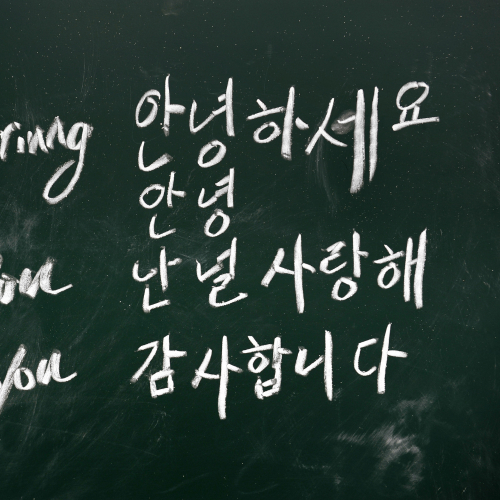 안녕하세요
안녕
난 널 사랑해
you 감사합니다